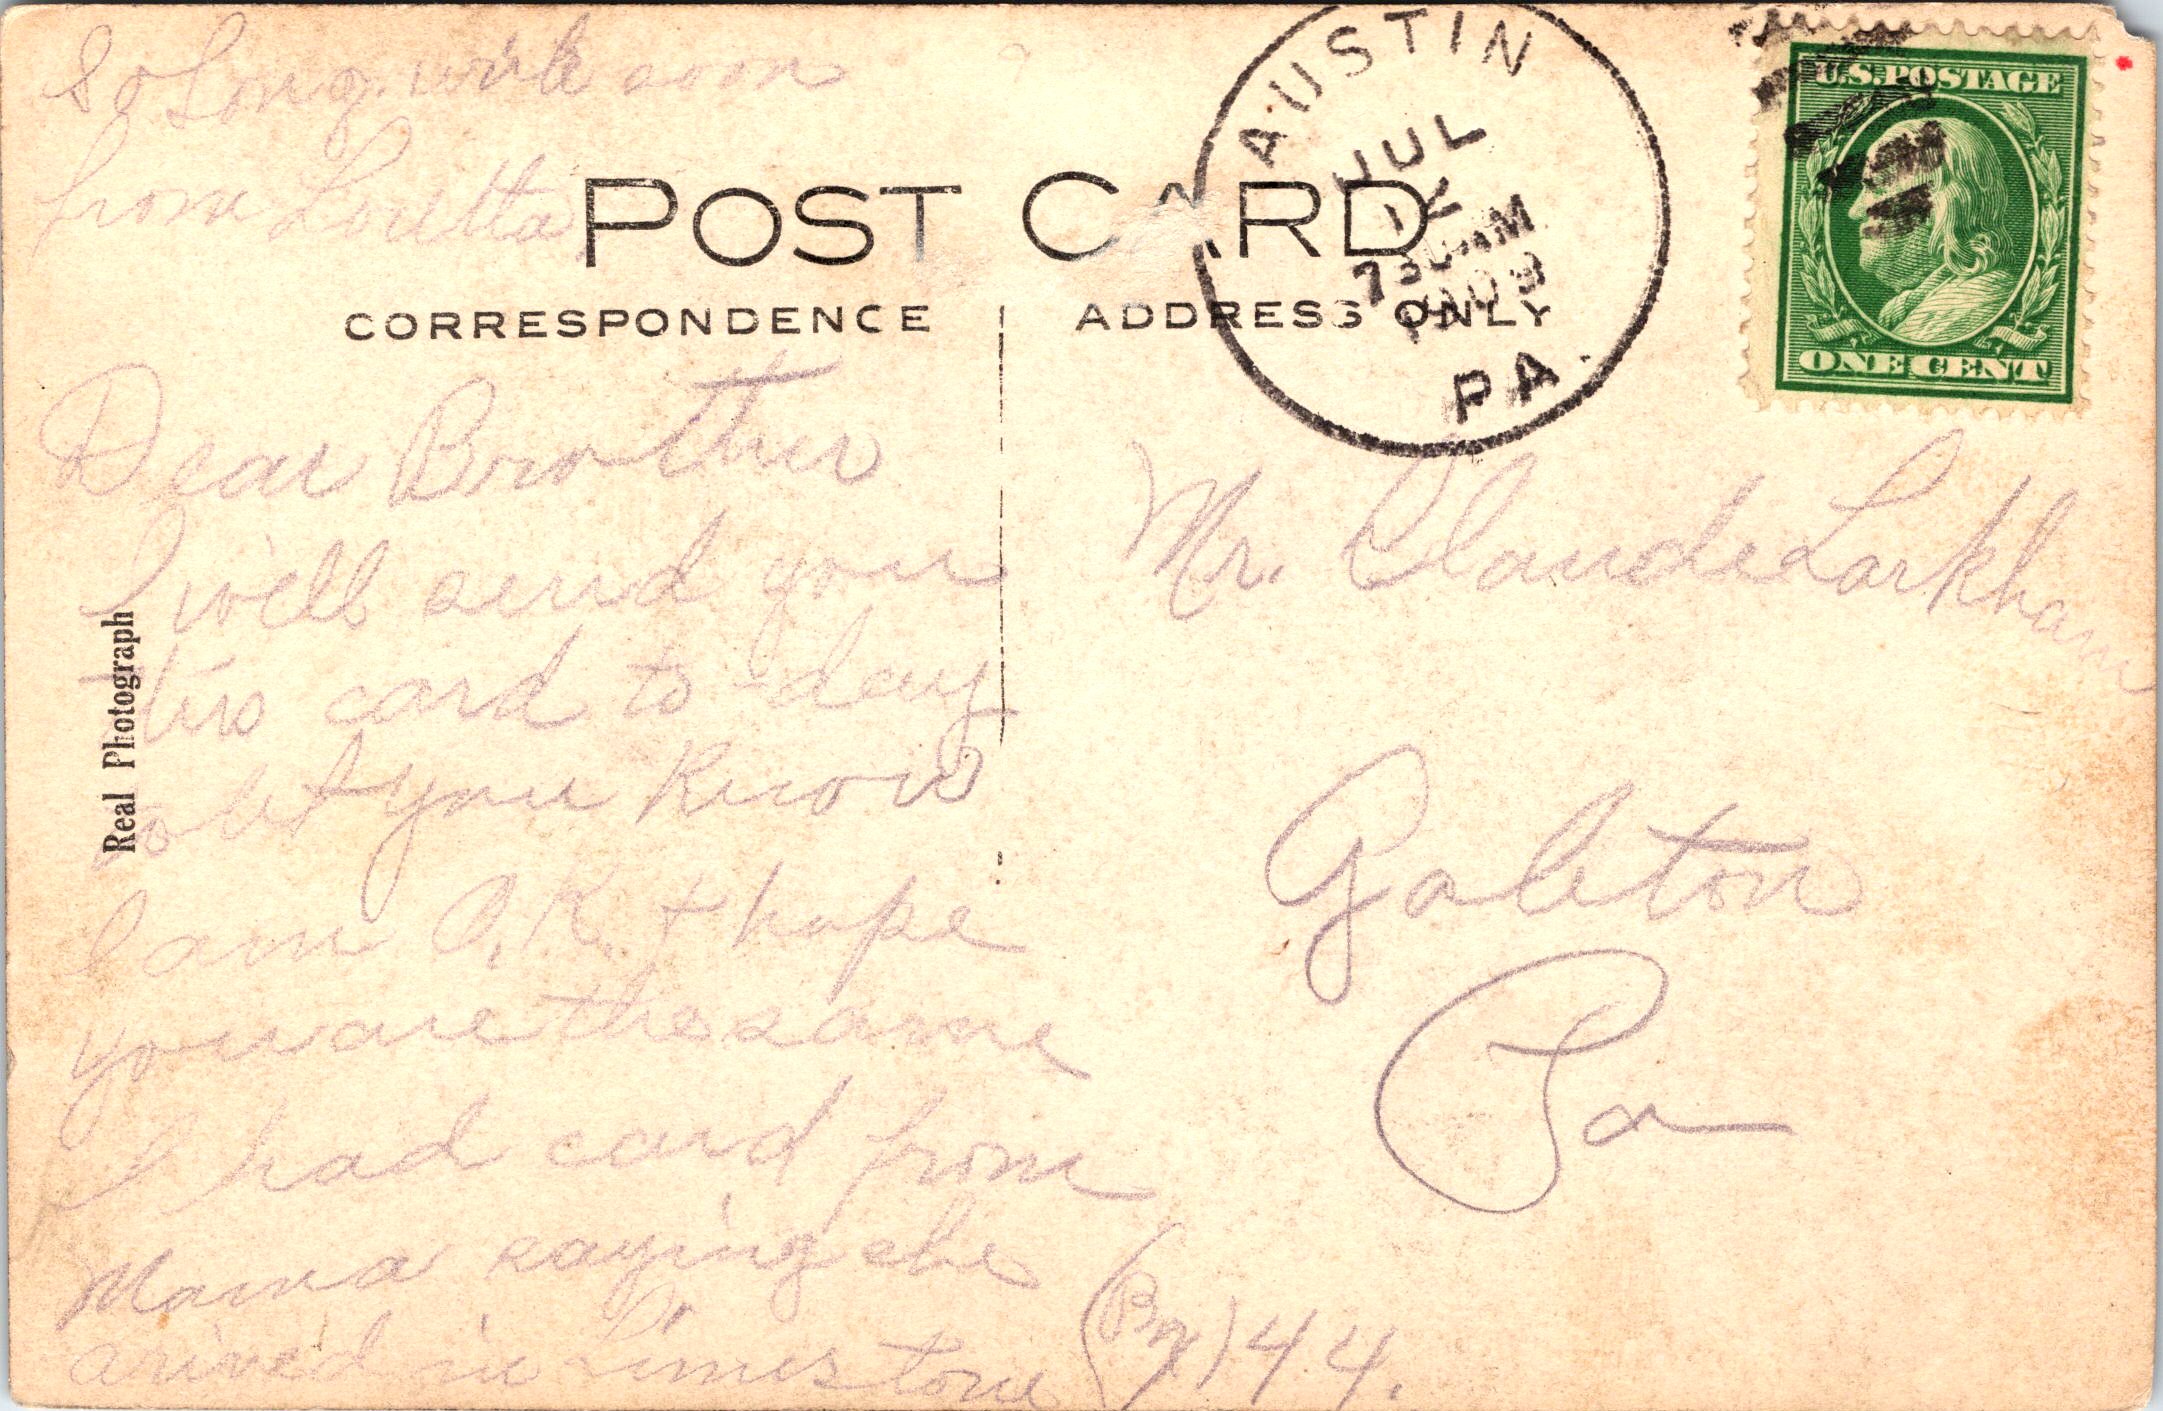 So Long. write soon
from Loretta
POST CARD
CORRESPONDENCE
ADDRESS ONLY
AUSTIN
JUL
730 AM
PA.
U.S. POSTAGE
ONE CENT
Real Photograph
Dear Brother
I will send you
this card to-day
to let you know
I am O.K. + hope
you are the same
I had card from
Mama saying she
arived in Limestone
Mr. Claude Larkham
Galeton
Pa
(Bx) 44.